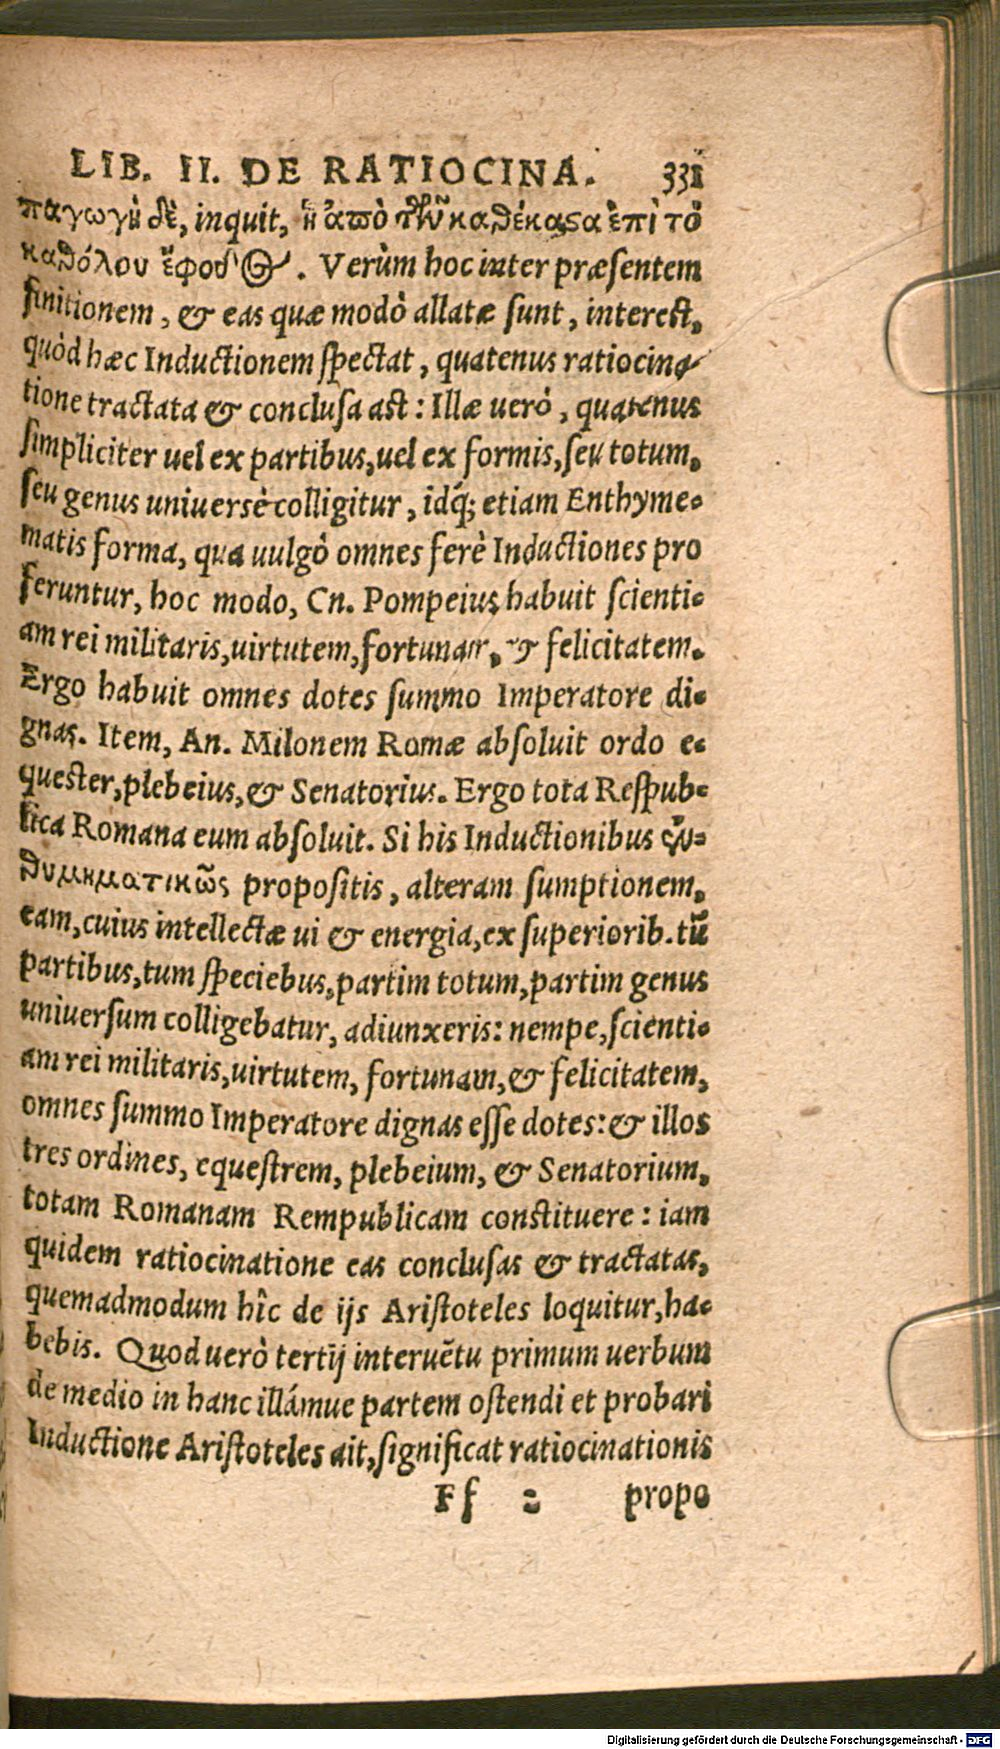 LIB. II. DE RATIOCINA. 331
παγωγὴ δὲ, inquit, ἡ ἀπὸ τῶν καθέκαστα ἐπὶ τὸ
καθόλου ἔφοδος. Verùm hoc inter præsentem
finitionem, & eas quæ modò allatæ sunt, interest,
quòd hæc Inductionem spectat, quatenus ratiocina-
tione tractata & conclusa ast: Illæ uerò, quatenus
simpliciter uel ex partibus, uel ex formis, seu totum,
seu genus uniuersè colligitur, idq́; etiam Enthyme-
matis forma, qua uulgò omnes ferè Inductiones pro
feruntur, hoc modo, Cn. Pompeius habuit scienti-
am rei militaris, uirtutem, fortunam, & felicitatem.
Ergo habuit omnes dotes summo Imperatore di-
gnas. Item, An. Milonem Romæ absoluit ordo e-
quester, plebeius, & Senatorius. Ergo tota Respub-
lica Romana eum absoluit. Si his Inductionibus ἐν-
θυμηματικῶς propositis, alteram sumptionem,
eam, cuius intellectæ ui & energia, ex superiorib. tū
partibus, tum speciebus, partim totum, partim genus
uniuersum colligebatur, adiunxeris: nempe, scienti-
am rei militaris, uirtutem, fortunam, & felicitatem,
omnes summo Imperatore dignas esse dotes: & illos
tres ordines, equestrem, plebeium, & Senatorium,
totam Romanam Rempublicam constituere: iam
quidem ratiocinatione eas conclusas & tractatas,
quemadmodum hîc de ijs Aristoteles loquitur, ha-
bebis. Quod uerò tertij interuētu primum uerbum
de medio in hanc illámue partem ostendi et probari
Inductione Aristoteles ait, significat ratiocinationis
Ff 2 propo
Digitalisierung gefördert durch die Deutsche Forschungsgemeinschaft - DFG